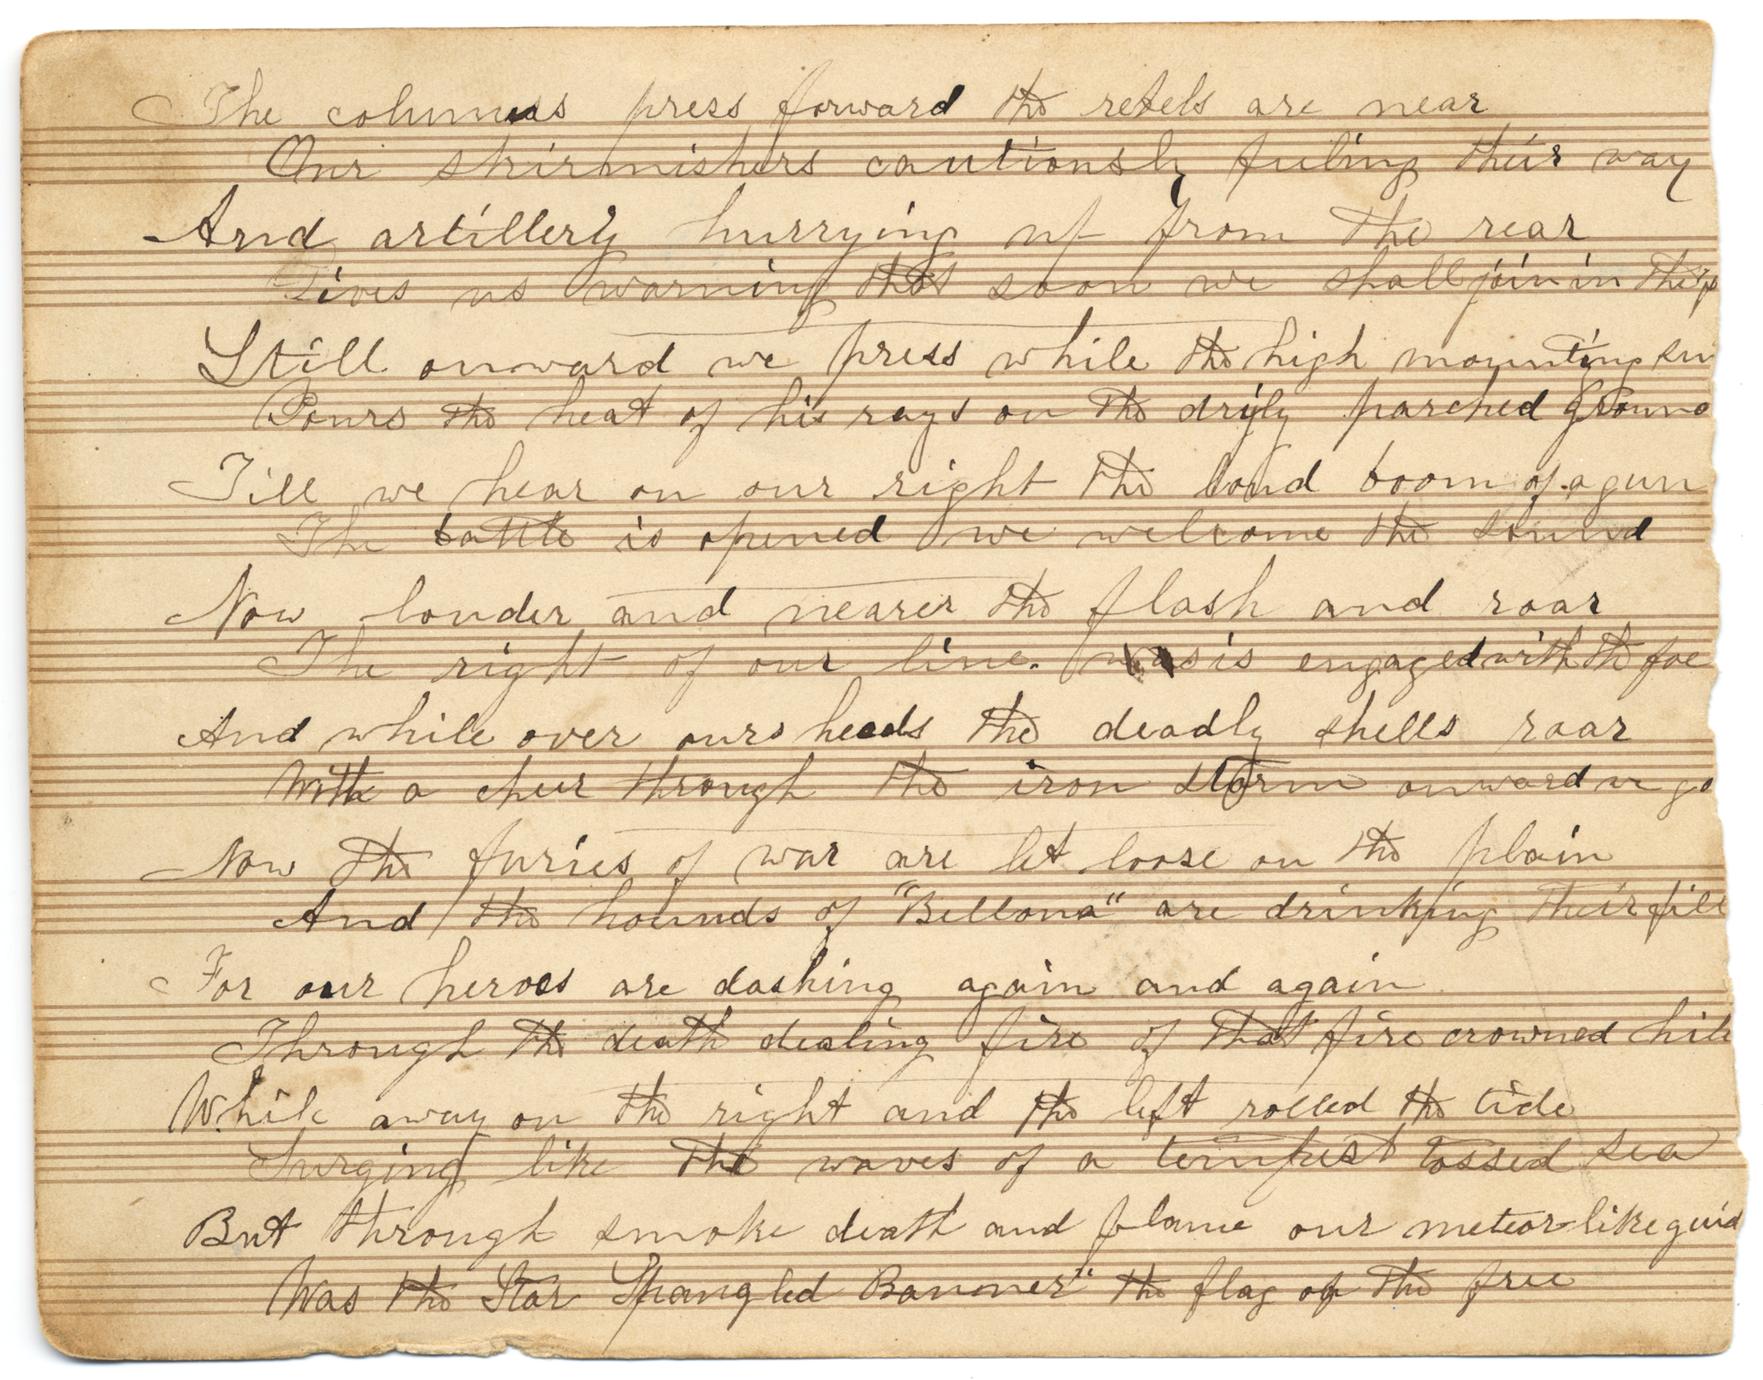 The columns press forward the rebels are near
Our skirmishers cautiously feeling their way
And artillery hurrying up from the rear
Gives us warning that soon we shall join in the
Still onward we press while the high mounting sun
Pours the heat of his rays on the dryly parched ground
Till we hear on our right the loud boom of a gun
The battle is opened we welcome the sound
Now louder and nearer the flash and roar
The right of our line. is engaged with the foe
And while over ours heads the deadly shells roar
With a cheer through the iron storm onward we go
Now the furies of war are let loose on the plain
And the hounds of "Bellona" are drinking their fill
For our heroes are dashing again and again
Through the death dealing fire of that fire crowned hill
While away on the right and the left rolled the tide
Surging like the waves of a tempest tossed sea
But through smoke death and flame our meteor-like guid
Was the Star Spangled Banner" the flag of the free